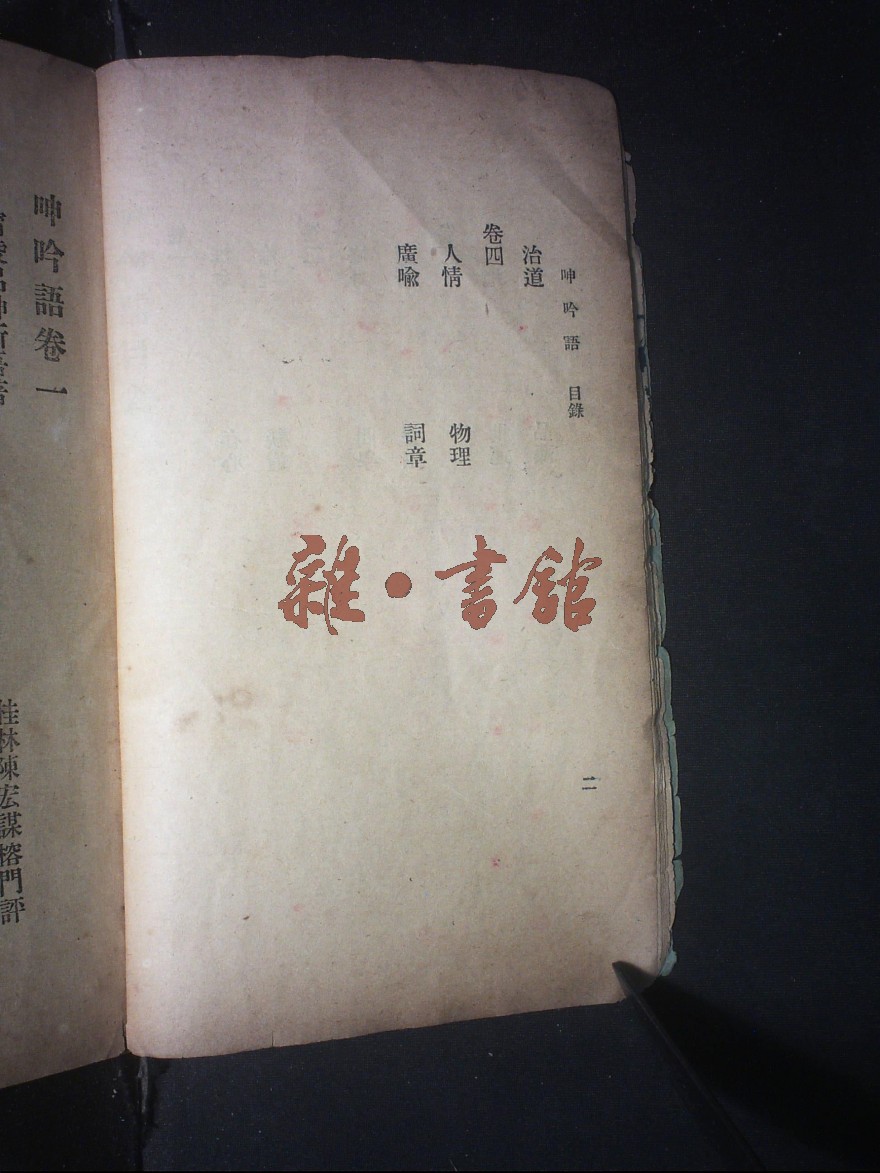 呻吟語 目錄
二
治道
卷四
人情 物理
廣喩 詞章
雜·書館
呻吟語卷一
桂林陳宏謀榕門評